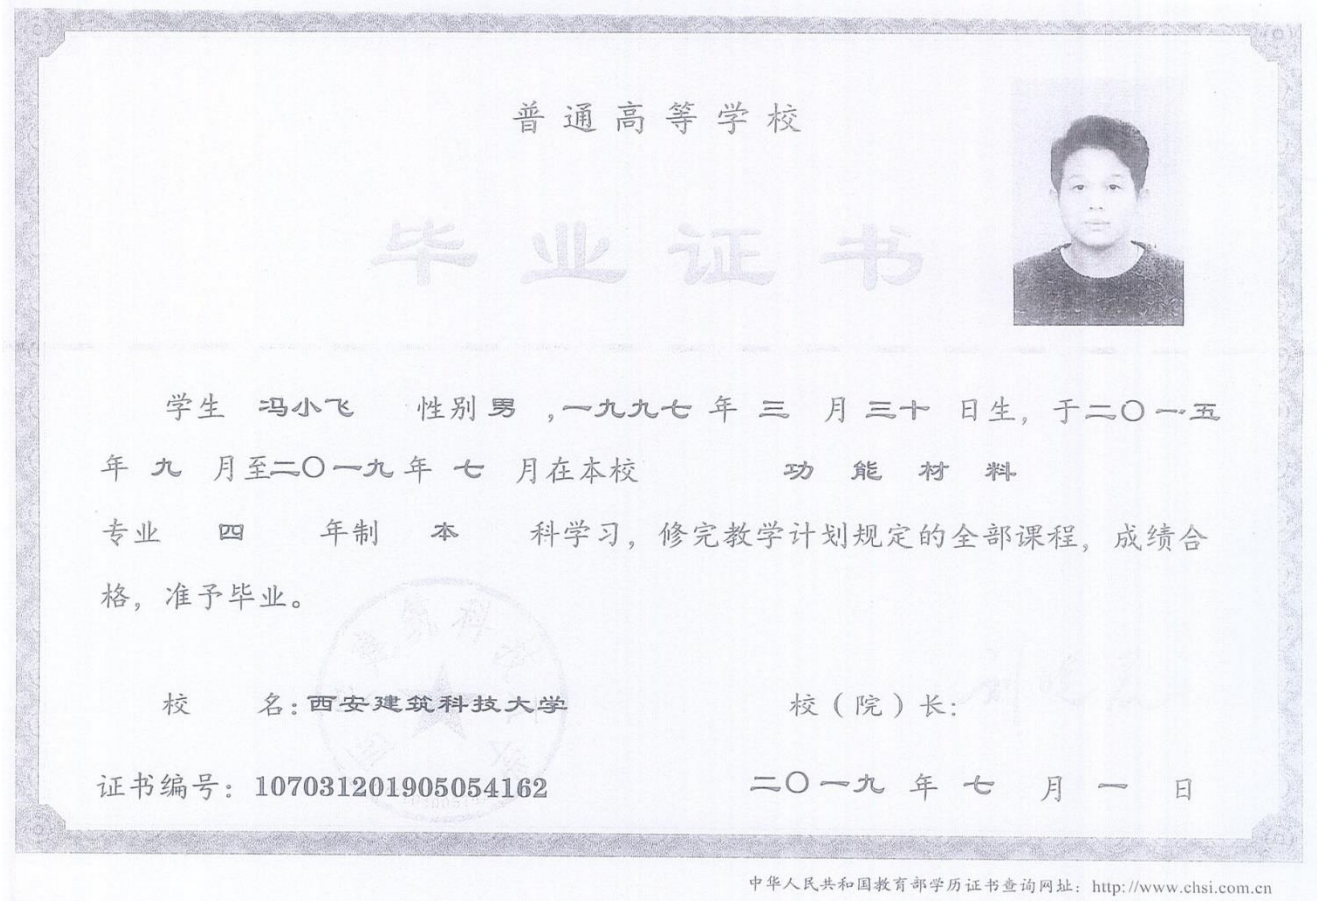 普通高等学校
毕业证书
学生 冯小飞 性别 男 ,一九九七 年 三 月 三十 日生, 于二〇一五
年 九 月至二〇一九 年 七 月在本校 功能材料
专业 四 年制 本 科学习, 修完教学计划规定的全部课程, 成绩合
格, 准予毕业。
校 名: 西安建筑科技大学 校(院)长:
证书编号: 107031201905054162 二〇一九 年 七 月 一 日
中华人民共和国教育部学历证书查询网址: http://www.chsi.com.cn